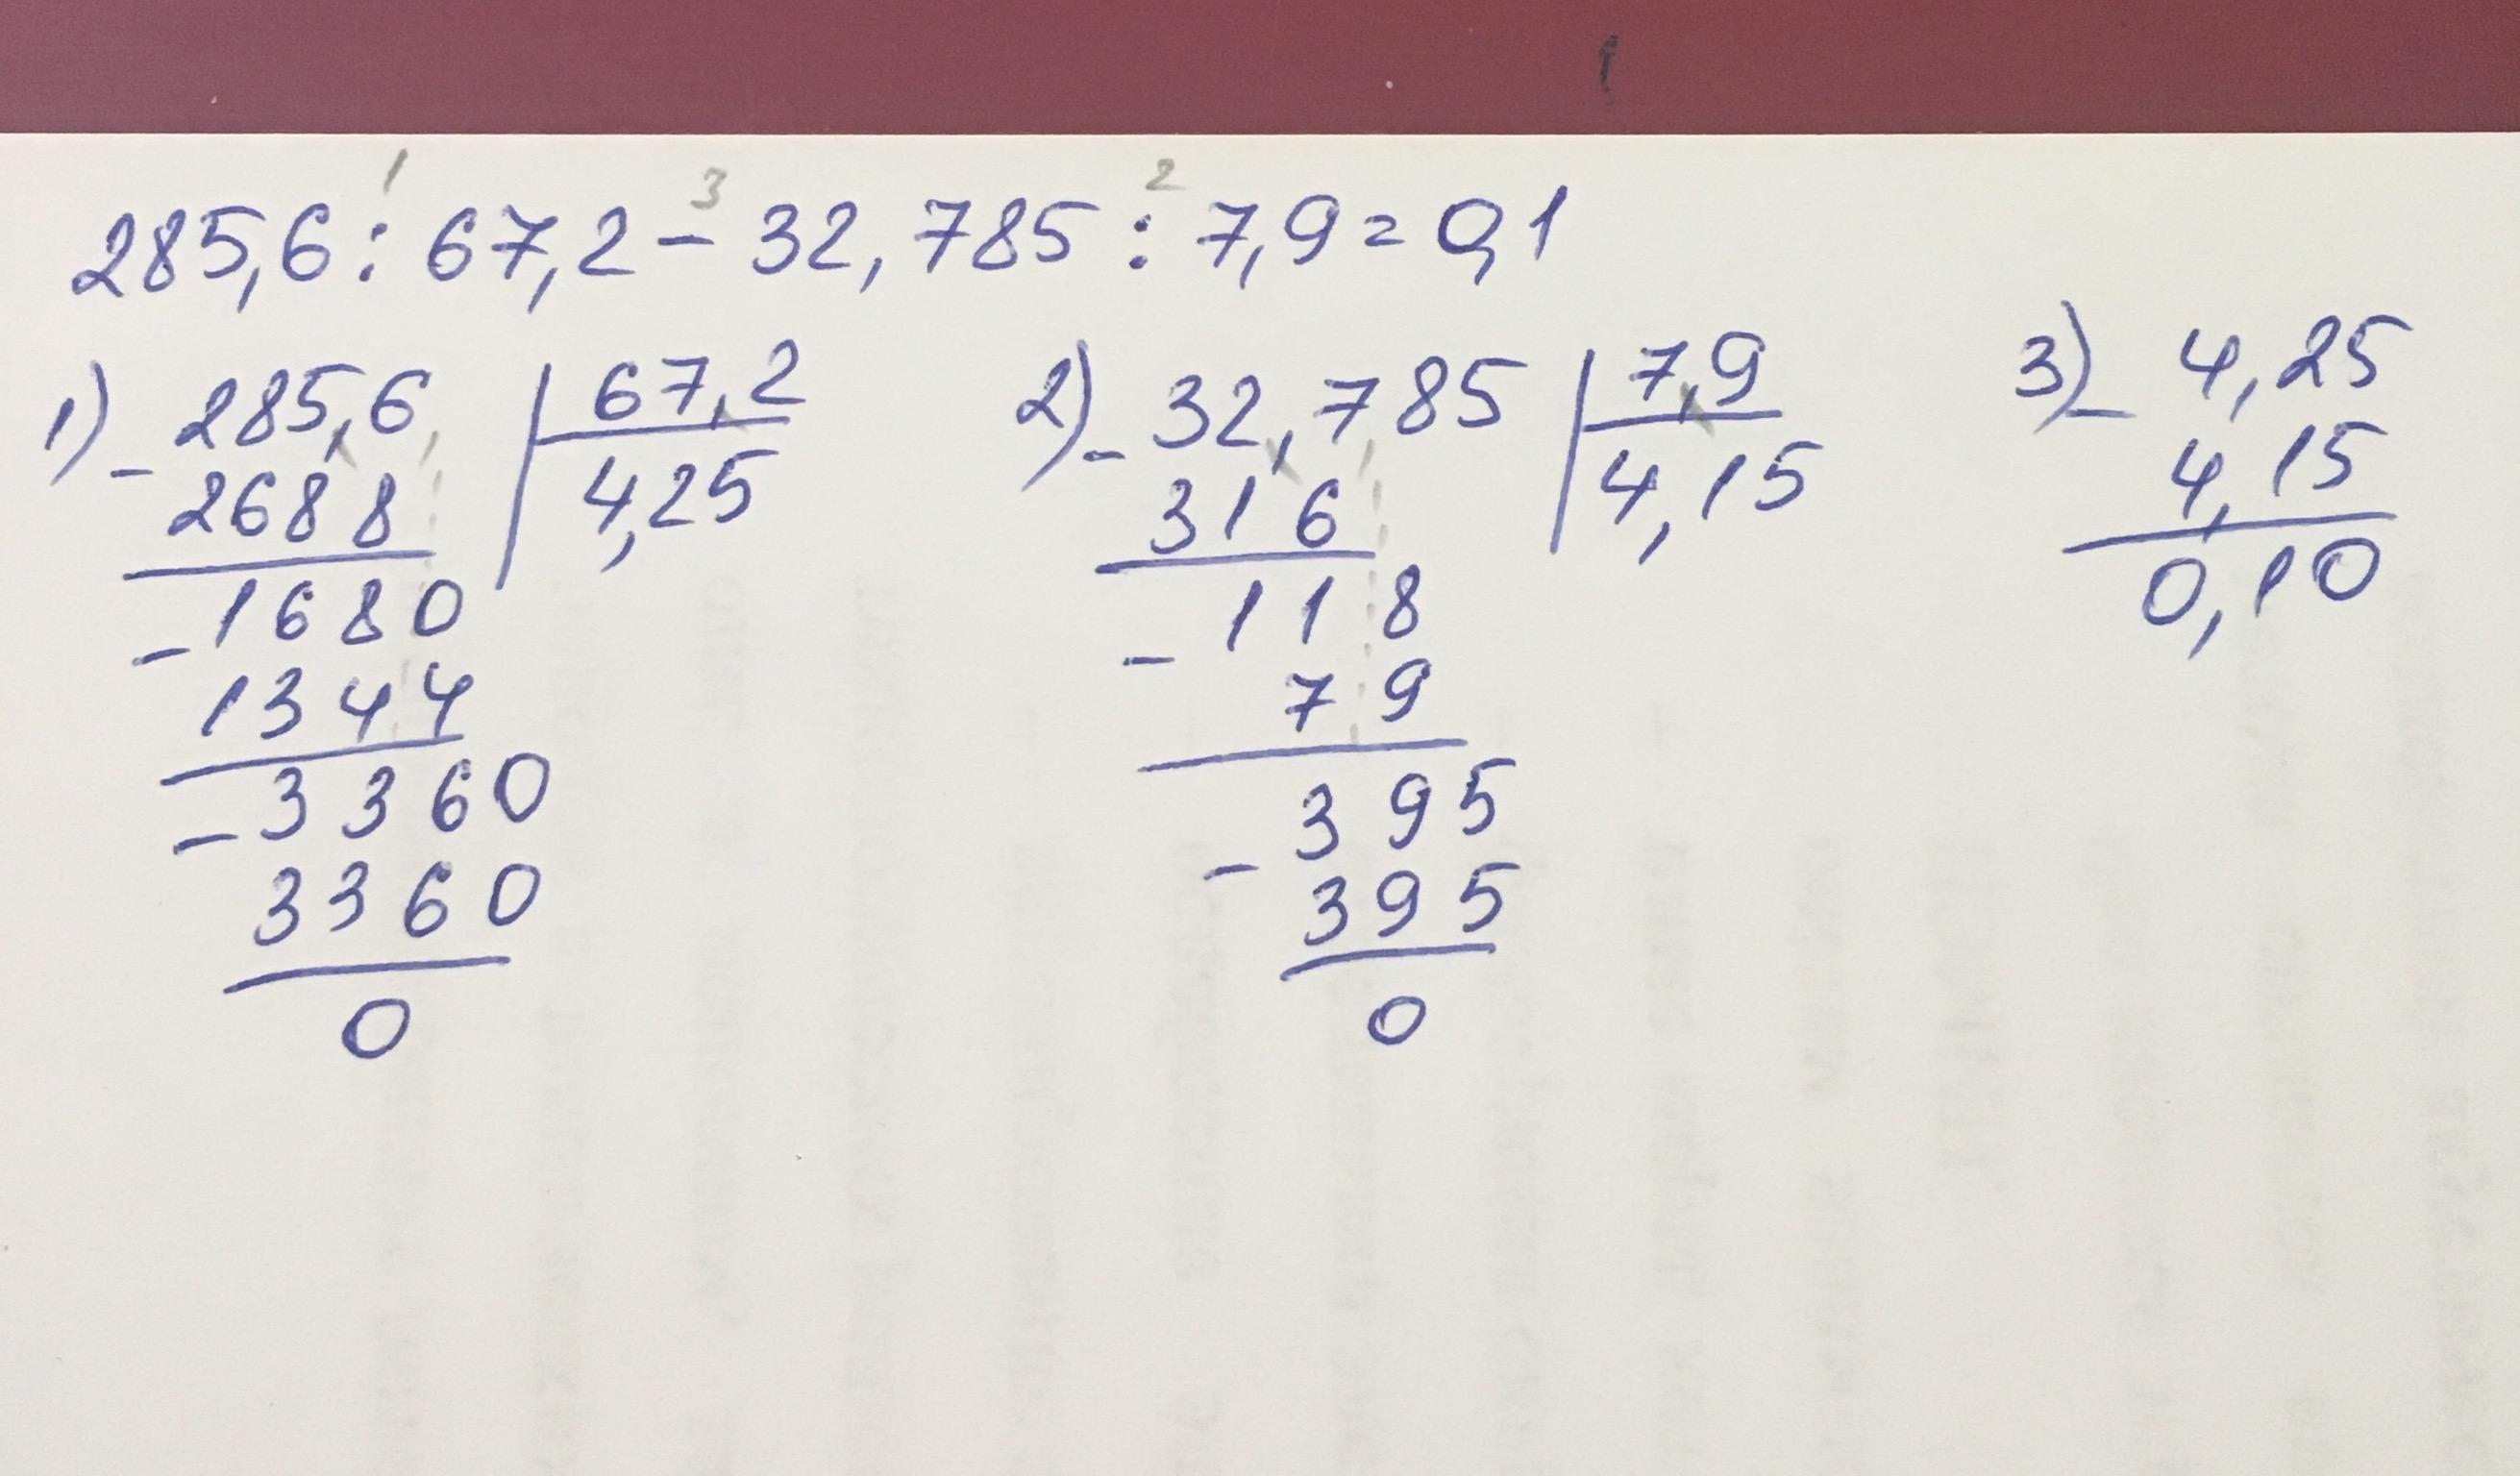 1 3 2
285,6 : 67,2 - 32,785 : 7,9 = 0,1
1) - 285,6 | 67,2
2688 | 4,25
- 1680
1344
- 3360
3360
0
2) - 32,785 | 7,9
316 | 4,15
- 118
79
- 395
395
0
3) - 4,25
4,15
0,10